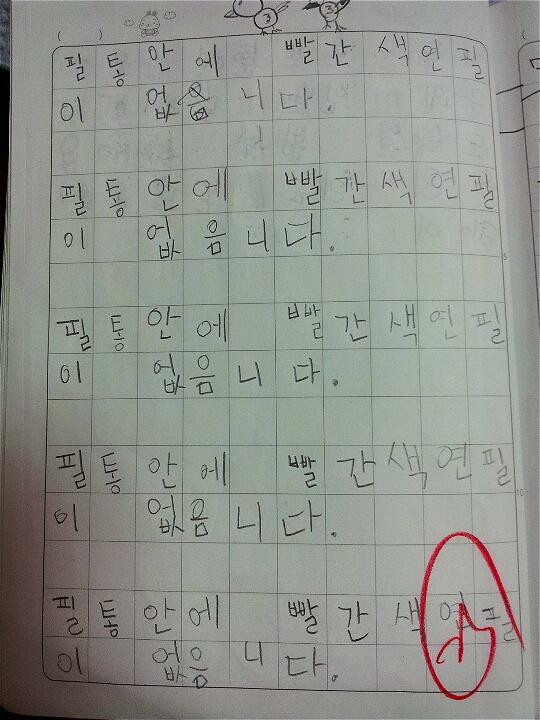 필통안에 빨간색연필
이 없음니다.
필통안에 빨간색연필
이 없음니다.
필통안에 빨간색연필
이 없음니다.
필통안에 빨간색연필
이 없음니다.
필통안에 빨간색연필
이 없음니다.